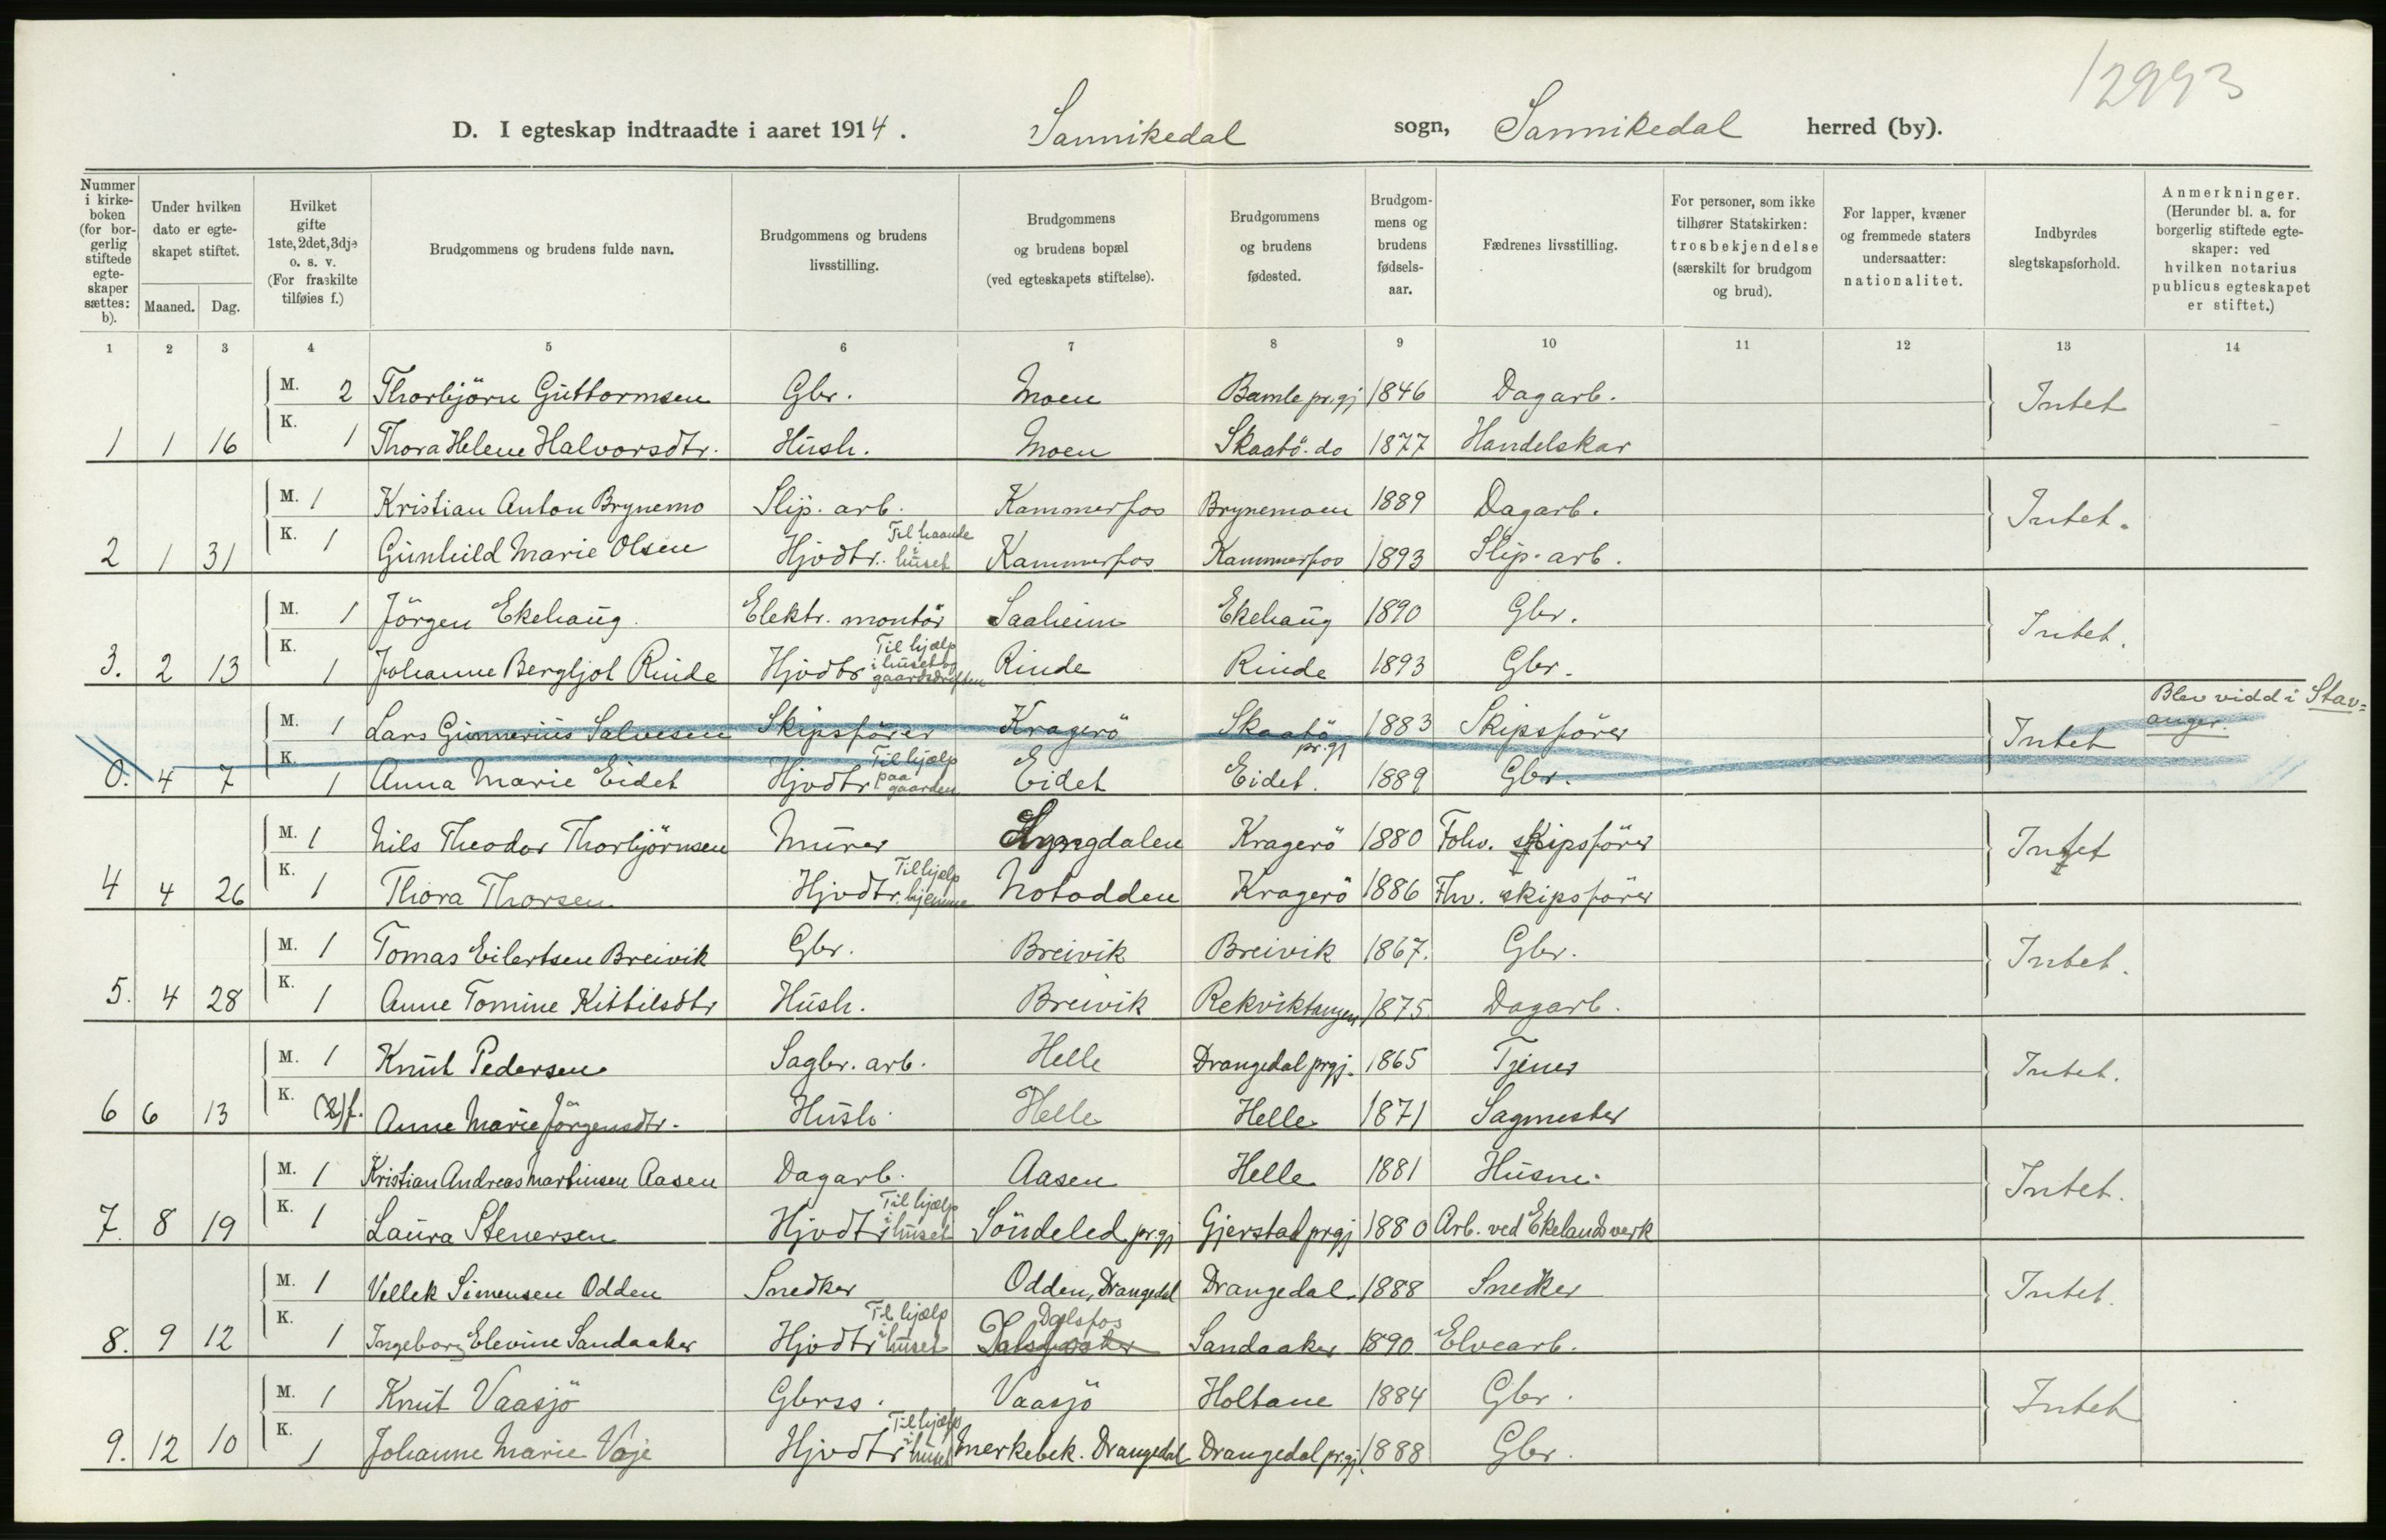 12993
D. I egteskap indtraadte i aaret 1914. Sannikedal sogn, Sannikedal herred (by).
Nummer i kirkeboken (for borgerlig stiftede egteskaper sættes: b).
Under hvilken dato er egteskapet stiftet.
Maaned. Dag.
Hvilket gifte 1ste, 2det, 3dje o. s. v. (For fraskilte tilføies f.)
Brudgommens og brudens fulde navn.
Brudgommens og brudens livsstilling.
Brudgommens og brudens bopæl (ved egteskapets stiftelse).
Brudgommens og brudens fødested.
Brudgommens og brudens fødselsaar.
Fædrenes livsstilling.
For personer, som ikke tilhører Statskirken: trosbekjendelse (særskilt for brudgom og brud).
For lapper, kvæner og fremmede staters undersaatter: nationalitet.
Indbyrdes slegtskapsforhold.
Anmerkninger. (Herunder bl. a. for borgerlig stiftede egteskaper: ved hvilken notarius publicus egteskapet er stiftet.)
1 2 3 4 5 6 7 8 9 10 11 12 13 14
M. 2 Thorbjörn Guttormsen Gbr. Moen Bamle prgj 1846 Dagarb. Intet
1 1 16 K. 1 Thora Helene Halvorsdtr. Hush. Moen Skaatö do 1877 Handelskar
M. 1 Kristian Anton Brynemo Slip. arb. Kammerfos Brynemoen 1889 Dagarb. Intet.
2 1 31 K. 1 Gunhild Marie Olsen Hjvdtr. Til haande i huset Kammerfos Kammerfos 1893 Slip. arb.
M. 1 Jörgen Ekehaug. Elektr. montör Saaheim Ekehaug 1890 Gbr. Intet.
3. 2 13 K. 1 Johanne Bergljot Rinde Hjvdtr Til hjælp i huset og gaardsdriften Rinde Rinde 1893 Gbr.
M. 1 Lars Gunnerius Salvesen Skipsförer Kragerö Skaatö pr.gj 1883 Skipsförer Intet Blev viedd i Stavanger.
0. 4 7 K. 1 Anna Marie Eidet Hjvdtr Til hjælp paa gaarden Eidet Eidet. 1889 Gbr.
M. 1 Nils Theodor Thorbjörnsen Murer Lyngdalen Kragerö 1880 Fohv. skipsförer Intet
4 4 26 K. 1 Thora Thorsen Hjvdtr. Til hjælp hjemme Notodden Kragerö 1886 Fhv. skipsförer
M. 1 Tomas Eilertsen Breivik Gbr. Breivik Breivik 1867. Gbr. Intet.
5. 4 28 K. 1 Anne Tomine Kittilsdtr Hush. Breivik Rekviktangen 1875. Dagarb.
M. 1 Knut Pedersen Sagbr. arb. Helle Drangedal prgj. 1865 Tjener Intet.
6 6 13 K. (2)f. Anne Marie Jörgensdtr. Hush. Helle Helle 1871 Sagmester
M. 1 Kristian Andreas Martinsen Aasen Dagarb. Aasen Helle 1881 Husm. Intet.
7. 8 19 K. 1 Laura Stenersen Hjvdtr Til hjælp i huset Söndeled prgj Gjerstad prgj 1880 Arb. ved Ekelands verk
M. 1 Vellek Simensen Odden Snedker Odden, Drangedal Drangedal 1888 Snedker Intet.
8. 9 12 K. 1 Ingeborg Elevine Sandaaker Hjvdtr Til hjælp i huset Dalsfos Sandaaker 1890 Elvearb.
M. 1 Knut Vaasjö Gbrss. Vaasjö Holtane 1884 Gbr. Intet
9. 12 10 K. 1 Johanne Marie Voje Hjvdtr Til hjælp i huset Merkebek. Drangedal Drangedal pr.gj. 1888 Gbr.